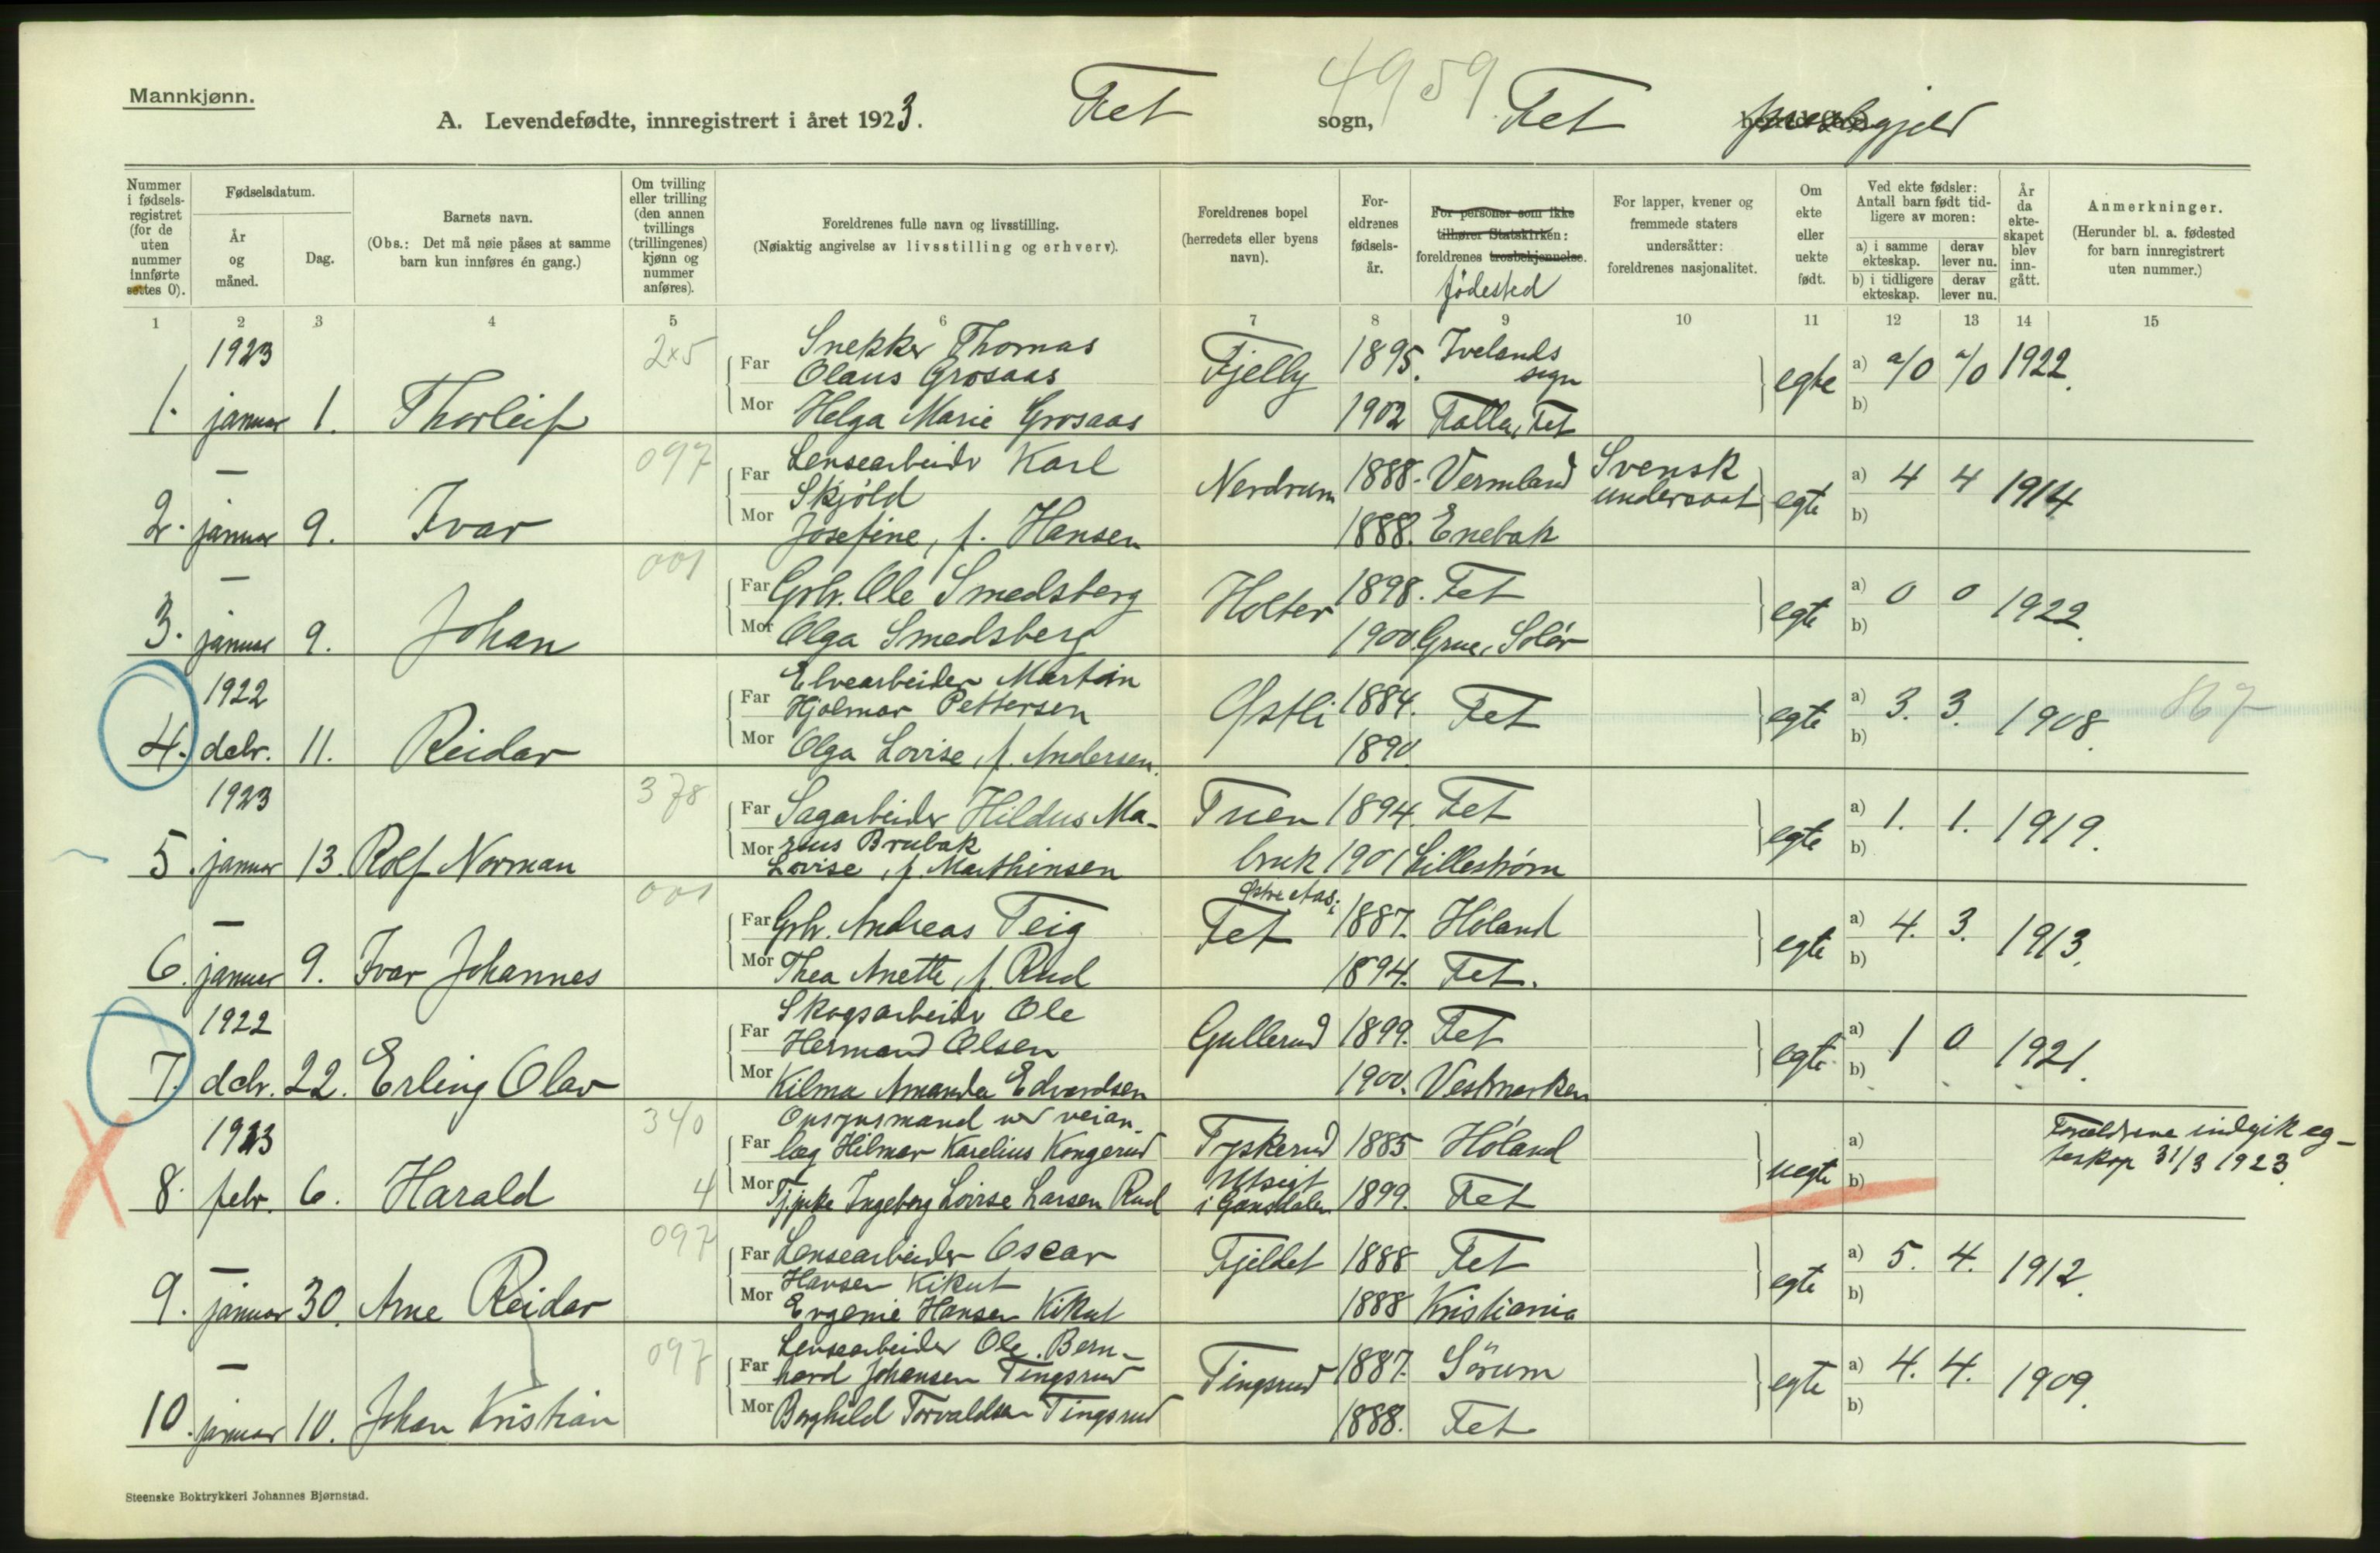 Mannkjønn.
A. Levendefødte, innregistrert i året 1923.
Fet sogn, Fet
4959
Nummer i fødsels-registret (for de uten nummer innførte settes 0).
Fødselsdatum.
År og måned.
Dag.
Barnets navn.
(Obs.: Det må nøie påses at samme barn kun innføres én gang.)
Om tvilling eller trilling (den annen tvillings (trillingenes) kjønn og nummer anføres).
Foreldrenes fulle navn og livsstilling.
(Nøiaktig angivelse av livsstilling og erhverv).
Foreldrenes bopel (herredets eller byens navn).
For-eldrenes fødsels-år.
For personer som ikke tilhører Statskirken: foreldrenes trosbekjennelse.
fødested
For lapper, kvener og fremmede staters undersåtter: foreldrenes nasjonalitet.
Om ekte eller uekte født.
Ved ekte fødsler: Antall barn født tid-ligere av moren:
a) i samme ekteskap.
derav lever nu.
b) i tidligere ekteskap.
derav lever nu.
År da ekte-skapet blev inn-gått.
Anmerkninger.
(Herunder bl. a. fødested for barn innregistrert uten nummer.)
1 2 3 4 5 6 7 8 9 10 11 12 13 14 15
1923
1. januar 1. Thorleif
2x5
Far Snekker Thomas
Olaus Grosaas
Mor Helga Marie Grosaas
Fjelly
1895. Ivelands sogn
1902 Falla, Fet
egte a) a/0 a/0 1922.
b)
2. januar 9. Ivar
097
Far Lensearbeider Karl
Skjöld
Mor Josefine, f. Hansen
Nerdrum
1888. Vermland
1888. Enebak
Svensk
undersaat
egte a) 4 4 1914
b)
3. januar 9. Johan
001
Far Grbr. Ole Smedsberg
Mor Olga Smedsberg
Holter
1898. Fet
1900. Grue, Solør
egte a) 0 0 1922.
b)
1922
4. debr. 11. Reidar
Far Elvearbeider Martin
Hjalmar Pettersen
Mor Olga Lovise, f. Andersen.
Østli
1884. Fet
1890.
egte a) 3. 3. 1908.
b)
1923
5. januar 13. Rolf Norman
378
Far Sagarbeider Hildus Ma-
rius Brubak
Mor Lovise, f. Mathinsen
Tuen
bruk
1894. Fet
1901 Lillestrøm
egte a) 1. 1. 1919.
b)
6. januar 9. Ivar Johannes
001
Far Grbr. Andreas Teig
Mor Thea Anette, f. Rud
Fet
1887. Høland
1894. Fet.
egte a) 4. 3. 1913.
b)
1922
7. debr. 22. Erling Olav
Far Skogsarbeider Ole
Hermand Olsen
Mor Kilma Amanda Edvardsen
Gullerud
1899. Fet
1900. Vestmarken
egte a) 1 0 1921.
b)
1923
8. febr. 6. Harald
340
4
Far Opsynsmand ved veian-
læg Hilmar Karelius Kongerud
Mor Tj.pike Ingeborg Lovise Larsen Rud
Tyskerud
Utsigt
i Gansdalen
1885 Høland
1899. Fet
uegte a)
b)
Forældrene indgik eg-
teskap 31/3 1923.
9. januar 30. Arne Reidar
097
Far Lensearbeider Oscar
Hansen Kikut
Mor Evgenie Hansen Kikut
Fjeldet
1888 Fet
1888 Kristiania
egte a) 5. 4. 1912.
b)
10. januar 10. Johan Kristian
097
Far Lensearbeider Ole Bern-
hard Johansen Tingsrud
Mor Borghild Torvaldsen Tingsrud
Tingsrud
1887. Sörum
1888. Fet
egte a) 4. 4. 1909.
b)
Steenske Boktrykkeri Johannes Bjørnstad.